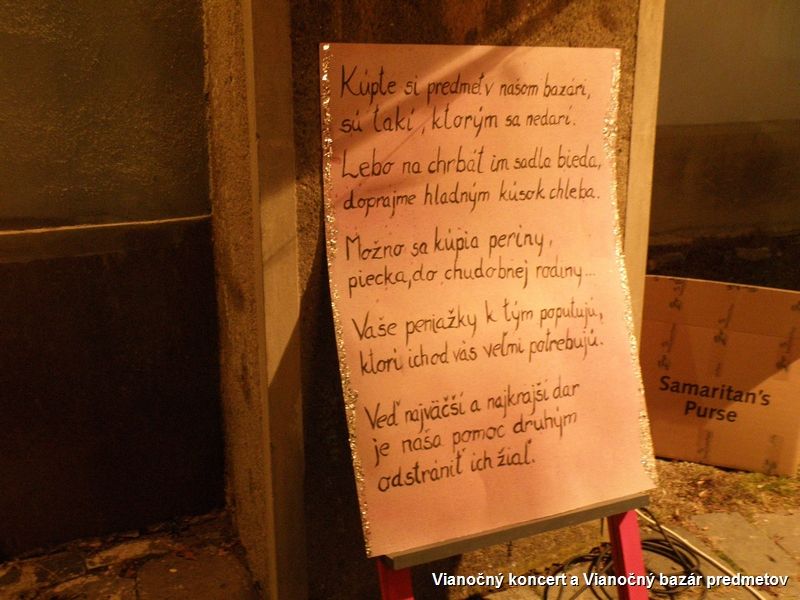 Kúpte si predmet v našom bazári,
sú takí, ktorým sa nedarí.
Lebo na chrbát im sadla bieda,
doprajme hladným kúsok chleba.
Možno sa kúpia periny,
piecka, do chudobnej rodiny...
Vaše peniažky k tým poputujú,
ktorí ich od vás veľmi potrebujú.
Veď najväčší a najkrajší dar
je naša pomoc druhým
odstrániť ich žiaľ.
Samaritan's
Purse
Vianočný koncert a Vianočný bazár predmetov